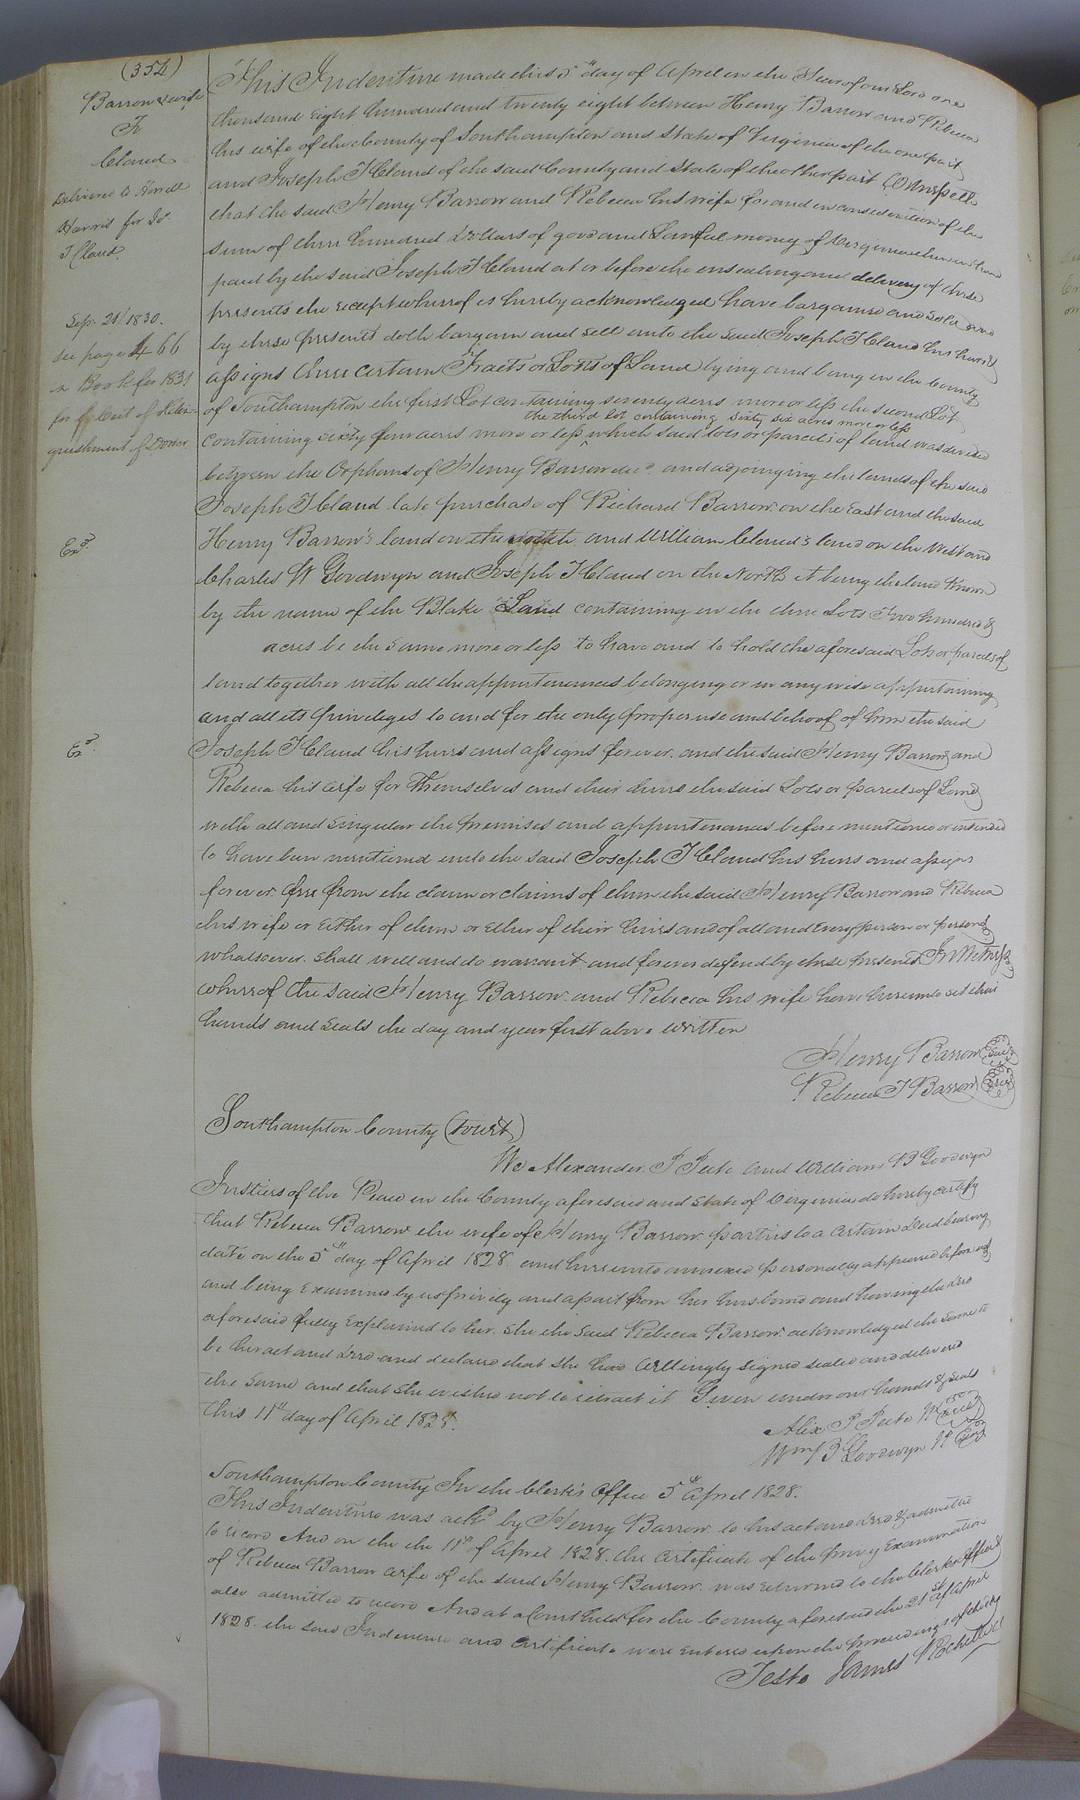 (354)
Barrow & wife
To
Claud
Delivered to Newell
Harris for Jos.
T Claud
Sep. 21 1830.
see page 466
in Book for 1831
for of Relin-
quishment of Dower
Exd.
Exd.
This Indenture made this 5th day of April in the Year of our Lord one
thousand eight hundred and twenty eight between Henry Barrow and Rebecca
his wife of the County of Southampton and State of Virginia of the one part
and Joseph T Claud of the said County and State of the other part Witnesseth
that the said Henry Barrow and Rebecca his wife for and in consideration of the
sum of three hundred Dollars of good and Lawful money of Virginia to them in hand
paid by the said Joseph T Claud at or before the ensealing and delivery of these
presents the receipt whereof is hereby acknowledged have bargained and Sold and
by these presents doth bargain and sell unto the said Joseph T Claud his heirs &
assigns three certain Tracts or Lotts of Land lying and being in the County
of Southampton the first Lot containing seventy acres more or less the second Lot
the third lot containing sixty six acres more or less
containing sixty four acres more or less which said lots or parcels of land was divided
between the Orphans of Henry Barrow decd. and adjoinging the lands of the said
Joseph T Claud late purchase of Richard Barrow on the East and the said
Henry Barrow's land on the South and William Claud's land on the West and
Charles W Goodwyn and Joseph T Claud on the North it being the land known
by the name of the Blake Land containing in the three Lots Two hundred &
acres be the same more or less to have and to hold the aforesaid Lots or parcels of
land together with all the appurtenances belonging or in any wise appurtaining
and all its privileges to and for the only proper use and behoof of him the said
Joseph T Claud his heirs and assigns forever. and the said Henry Barrow and
Rebecca his wife for themselves and their heirs the said Lots or parcels of Land
with all and Singular the premises and appurtenances before mentioned or intended
to have been mentioned unto the said Joseph T Claud his heirs and assigns
forever free from the claim or claims of them the said Henry Barrow and Rebecca
his wife or either of them or either of their heirs and of all and every person or persons
whatsoever. shall will and do warrant and forever defend by these presents In Witness
whereof the said Henry Barrow and Rebecca his wife have hereunto set their
hands and seals the day and year first above written
Henry Barrow Seal
Rebecca T Barrow Seal
Southampton County (Court)
We Alexander P Peete and William B Goodwyn
Justices of the Peace in the County aforesaid and State of Virginia do hereby certify
that Rebecca Barrow the wife of Henry Barrow parties to a certain deed bearing
date on the 5th day of April 1828 and hereunto annexed personally appeared before us
and being Examined by us privily and apart from her husband and having the deed
aforesaid fully explained to her. She the said Rebecca Barrow acknowledged the same to
be her act and deed and declared that she had willingly signed sealed and delivered
the same and that she wished not to retract it Given under our hands & seals
this 11th day of April 1828.
Alex P Peete Seal
Wm B Goodwyn Seal
Southampton County In the Clerk's Office 5th April 1828.
This Indenture was ackd. by Henry Barrow to his act and deed & admitted
to record And on the the 11th of April 1828. the certificate of the privy Examination
of Rebecca Barrow wife of the said Henry Barrow was returned to the Clerks Office &
also admitted to record And at a Court held for the County aforesaid the 21st of April
1828. the said Indenture and certificate were entered upon the proceedings of the day
Teste James Rochelle Cl